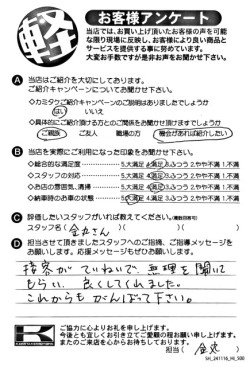 軽
お客様アンケート
当店では、お買上げ頂いたお客様の声を可能
な限り現場に反映し、お客様により良い商品と
サービスを提供する事に努めています。
大変お手数ですが是非お声をお聞かせ下さい。
A 当店はご紹介を大切にしております。
ご紹介キャンペーンについてお聞かせ下さい。
◇カミタケご紹介キャンペーンのご説明はありましたでしょうか
はい いいえ
◇具体的にご紹介頂ける方とのご関係をお聞かせ頂けますでしょうか
ご親族 ご友人 職場の方 機会があれば紹介したい
B 当店を実際にご利用になった印象をお聞かせ下さい。
◇総合的な満足度 5.大満足 4.満足 3.ふつう 2.やや不満 1.不満
◇スタッフの対応 5.大満足 4.満足 3.ふつう 2.やや不満 1.不満
◇お店の雰囲気、清掃 5.大満足 4.満足 3.ふつう 2.やや不満 1.不満
◇納車時のお車の状態 5.大満足 4.満足 3.ふつう 2.やや不満 1.不満
C 評価したいスタッフがいれば教えてください。(複数回答可)
スタッフ名( 金丸さん )( )( )
D 担当させて頂きましたスタッフへのご指摘、ご指導メッセージを
お願いします。応援メッセージもぜひお願いします。
接客が ていねいで 無理を聞いて
もらい 良くしてくれました。
これからも がんばって下さい。
ご協力に心よりお礼を申し上げます。
今後とも宜しくお引き立てご愛顧の程お願い申し上げます。
またのご来店を心からお待ちしております。
担当( 金丸 )
SH_241116_HI_500